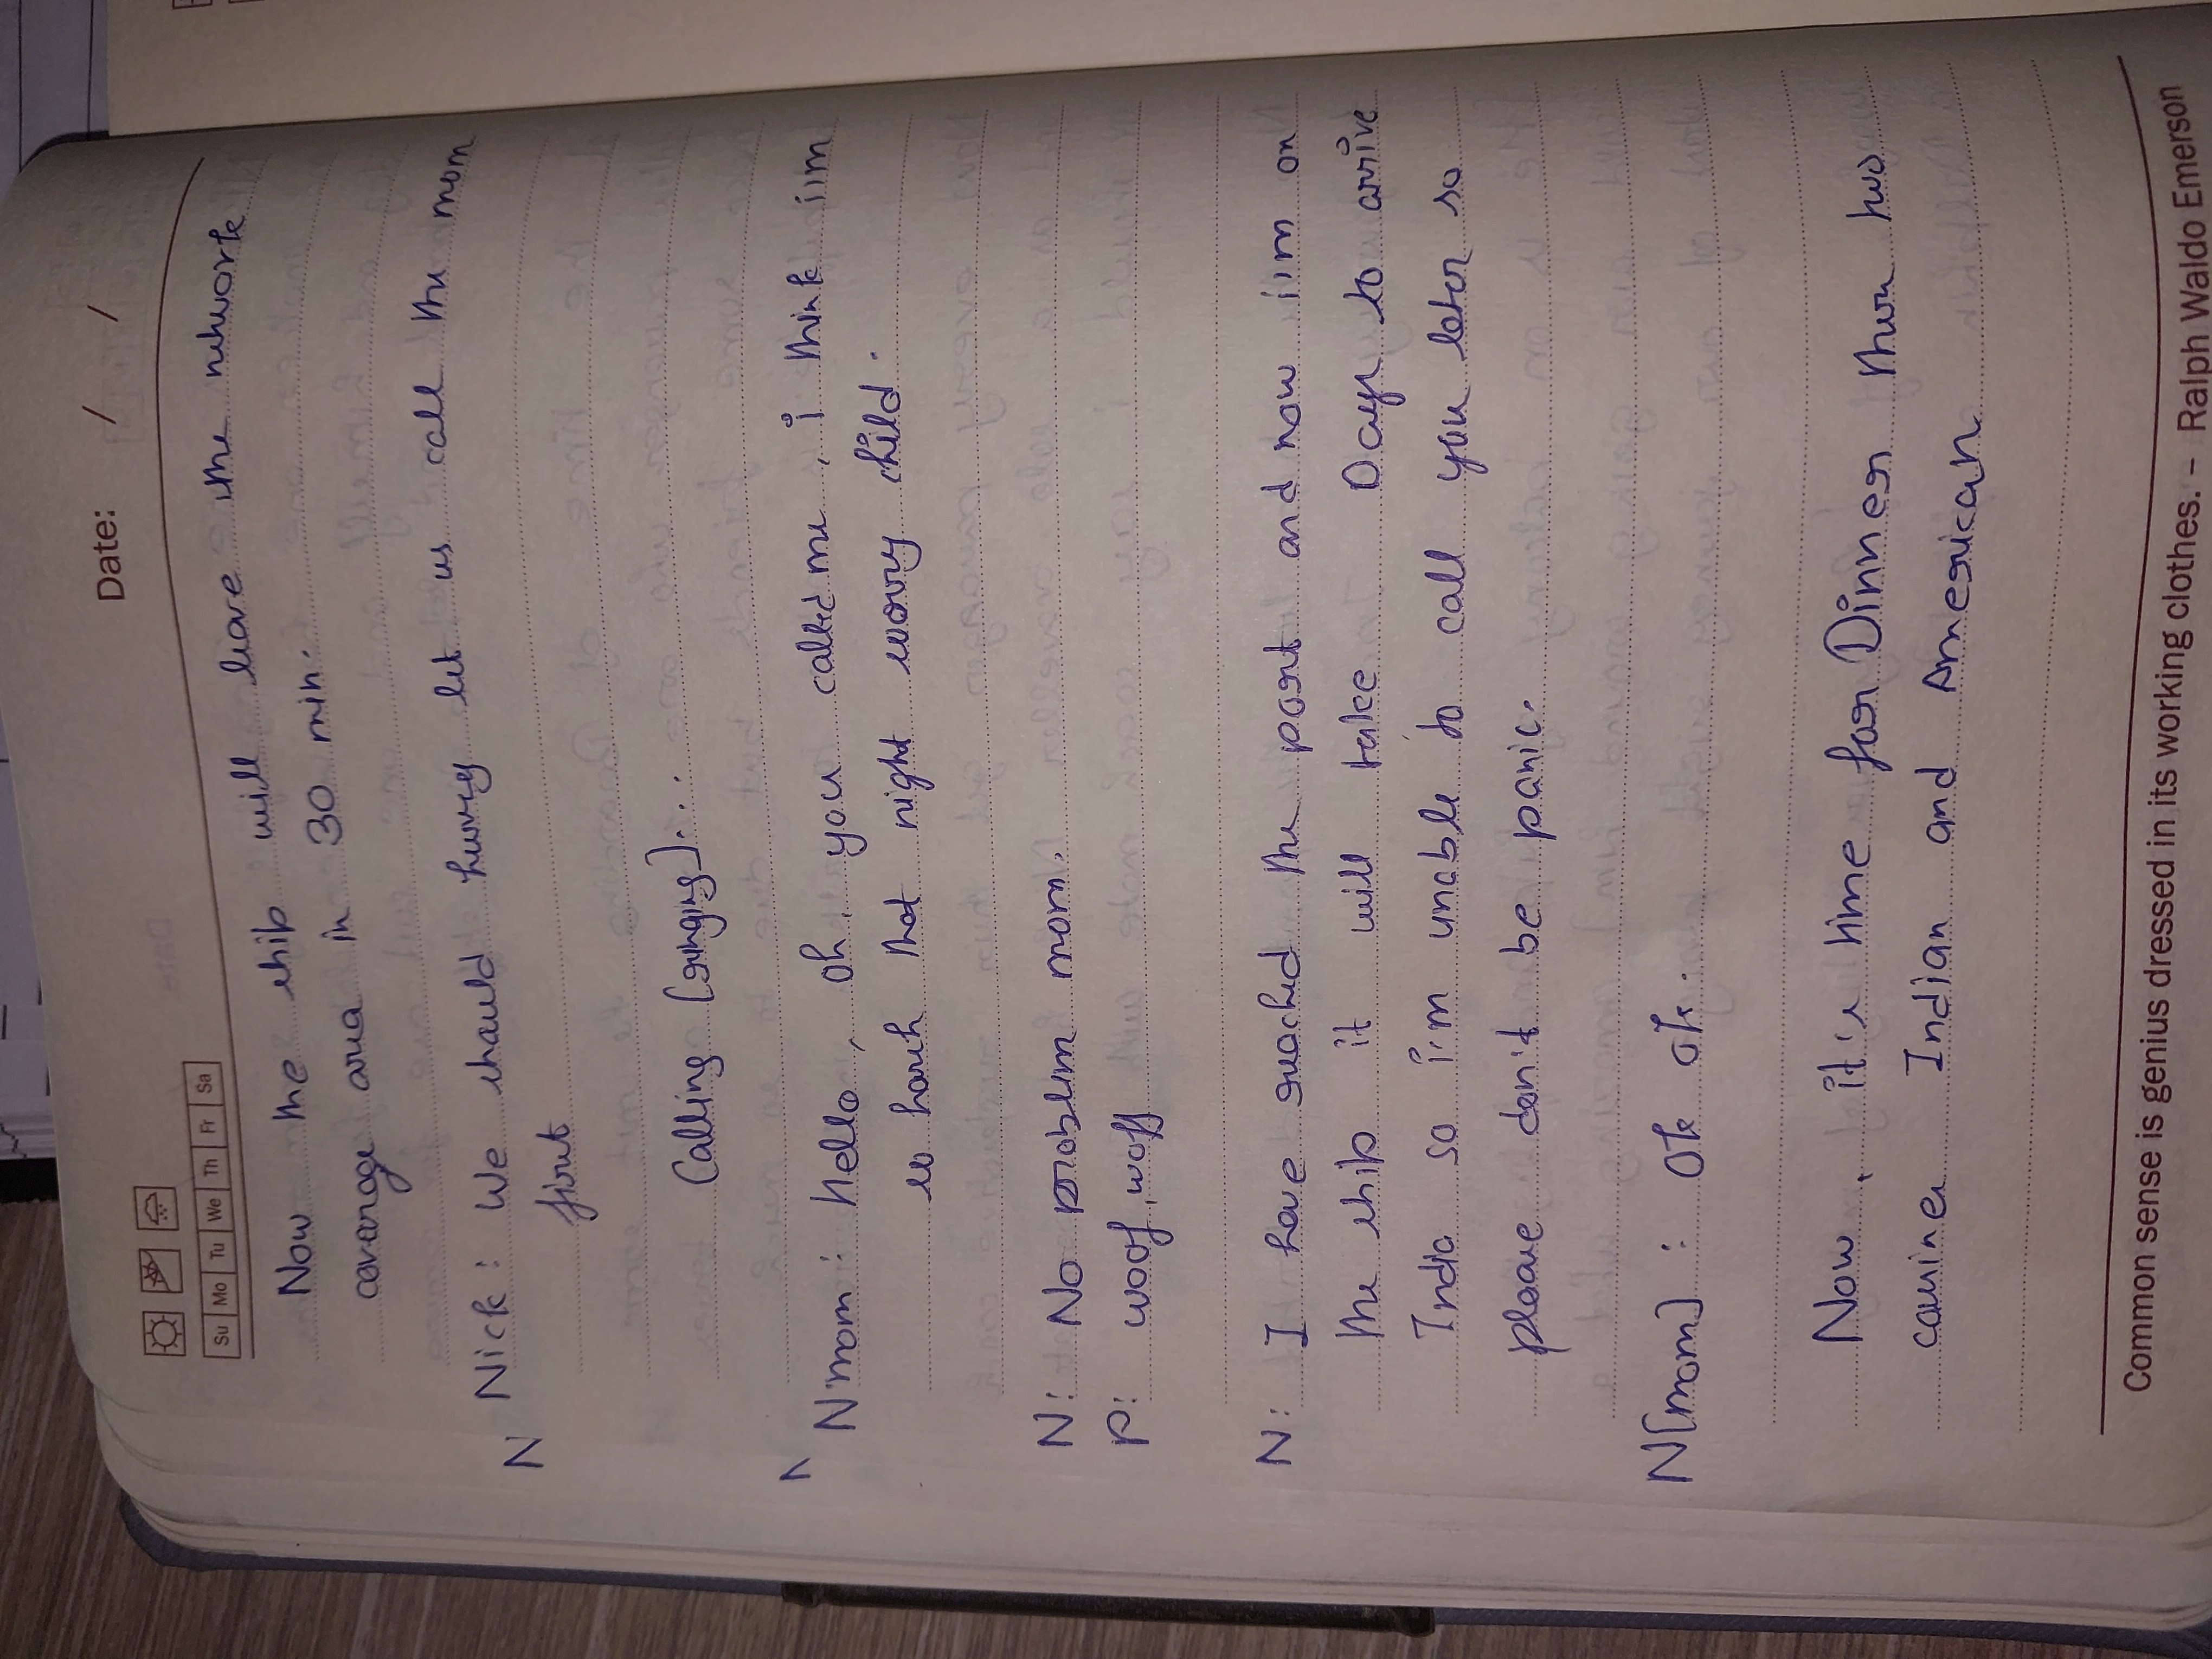 Date: / /
Su Mo Tu We Th Fr Sa
Now the ship will leave the network
coverage area in 30 min.
N Nick: We should hurry let us call the mom
first
Calling [ringing]...
N'mom: Hello, oh, you called me, i think i'm
so harsh that night sorry child.
N: No problem mom.
P: woof, woff
N: I have reached the port and now i'm on
the ship it will take Days to arrive
India so i'm unable to call you later so
please don't be panic.
N[mom]: Ok ok.
Now, it's time for Dinner two
Indian and American
Common sense is genius dressed in its working clothes. – Ralph Waldo Emerson